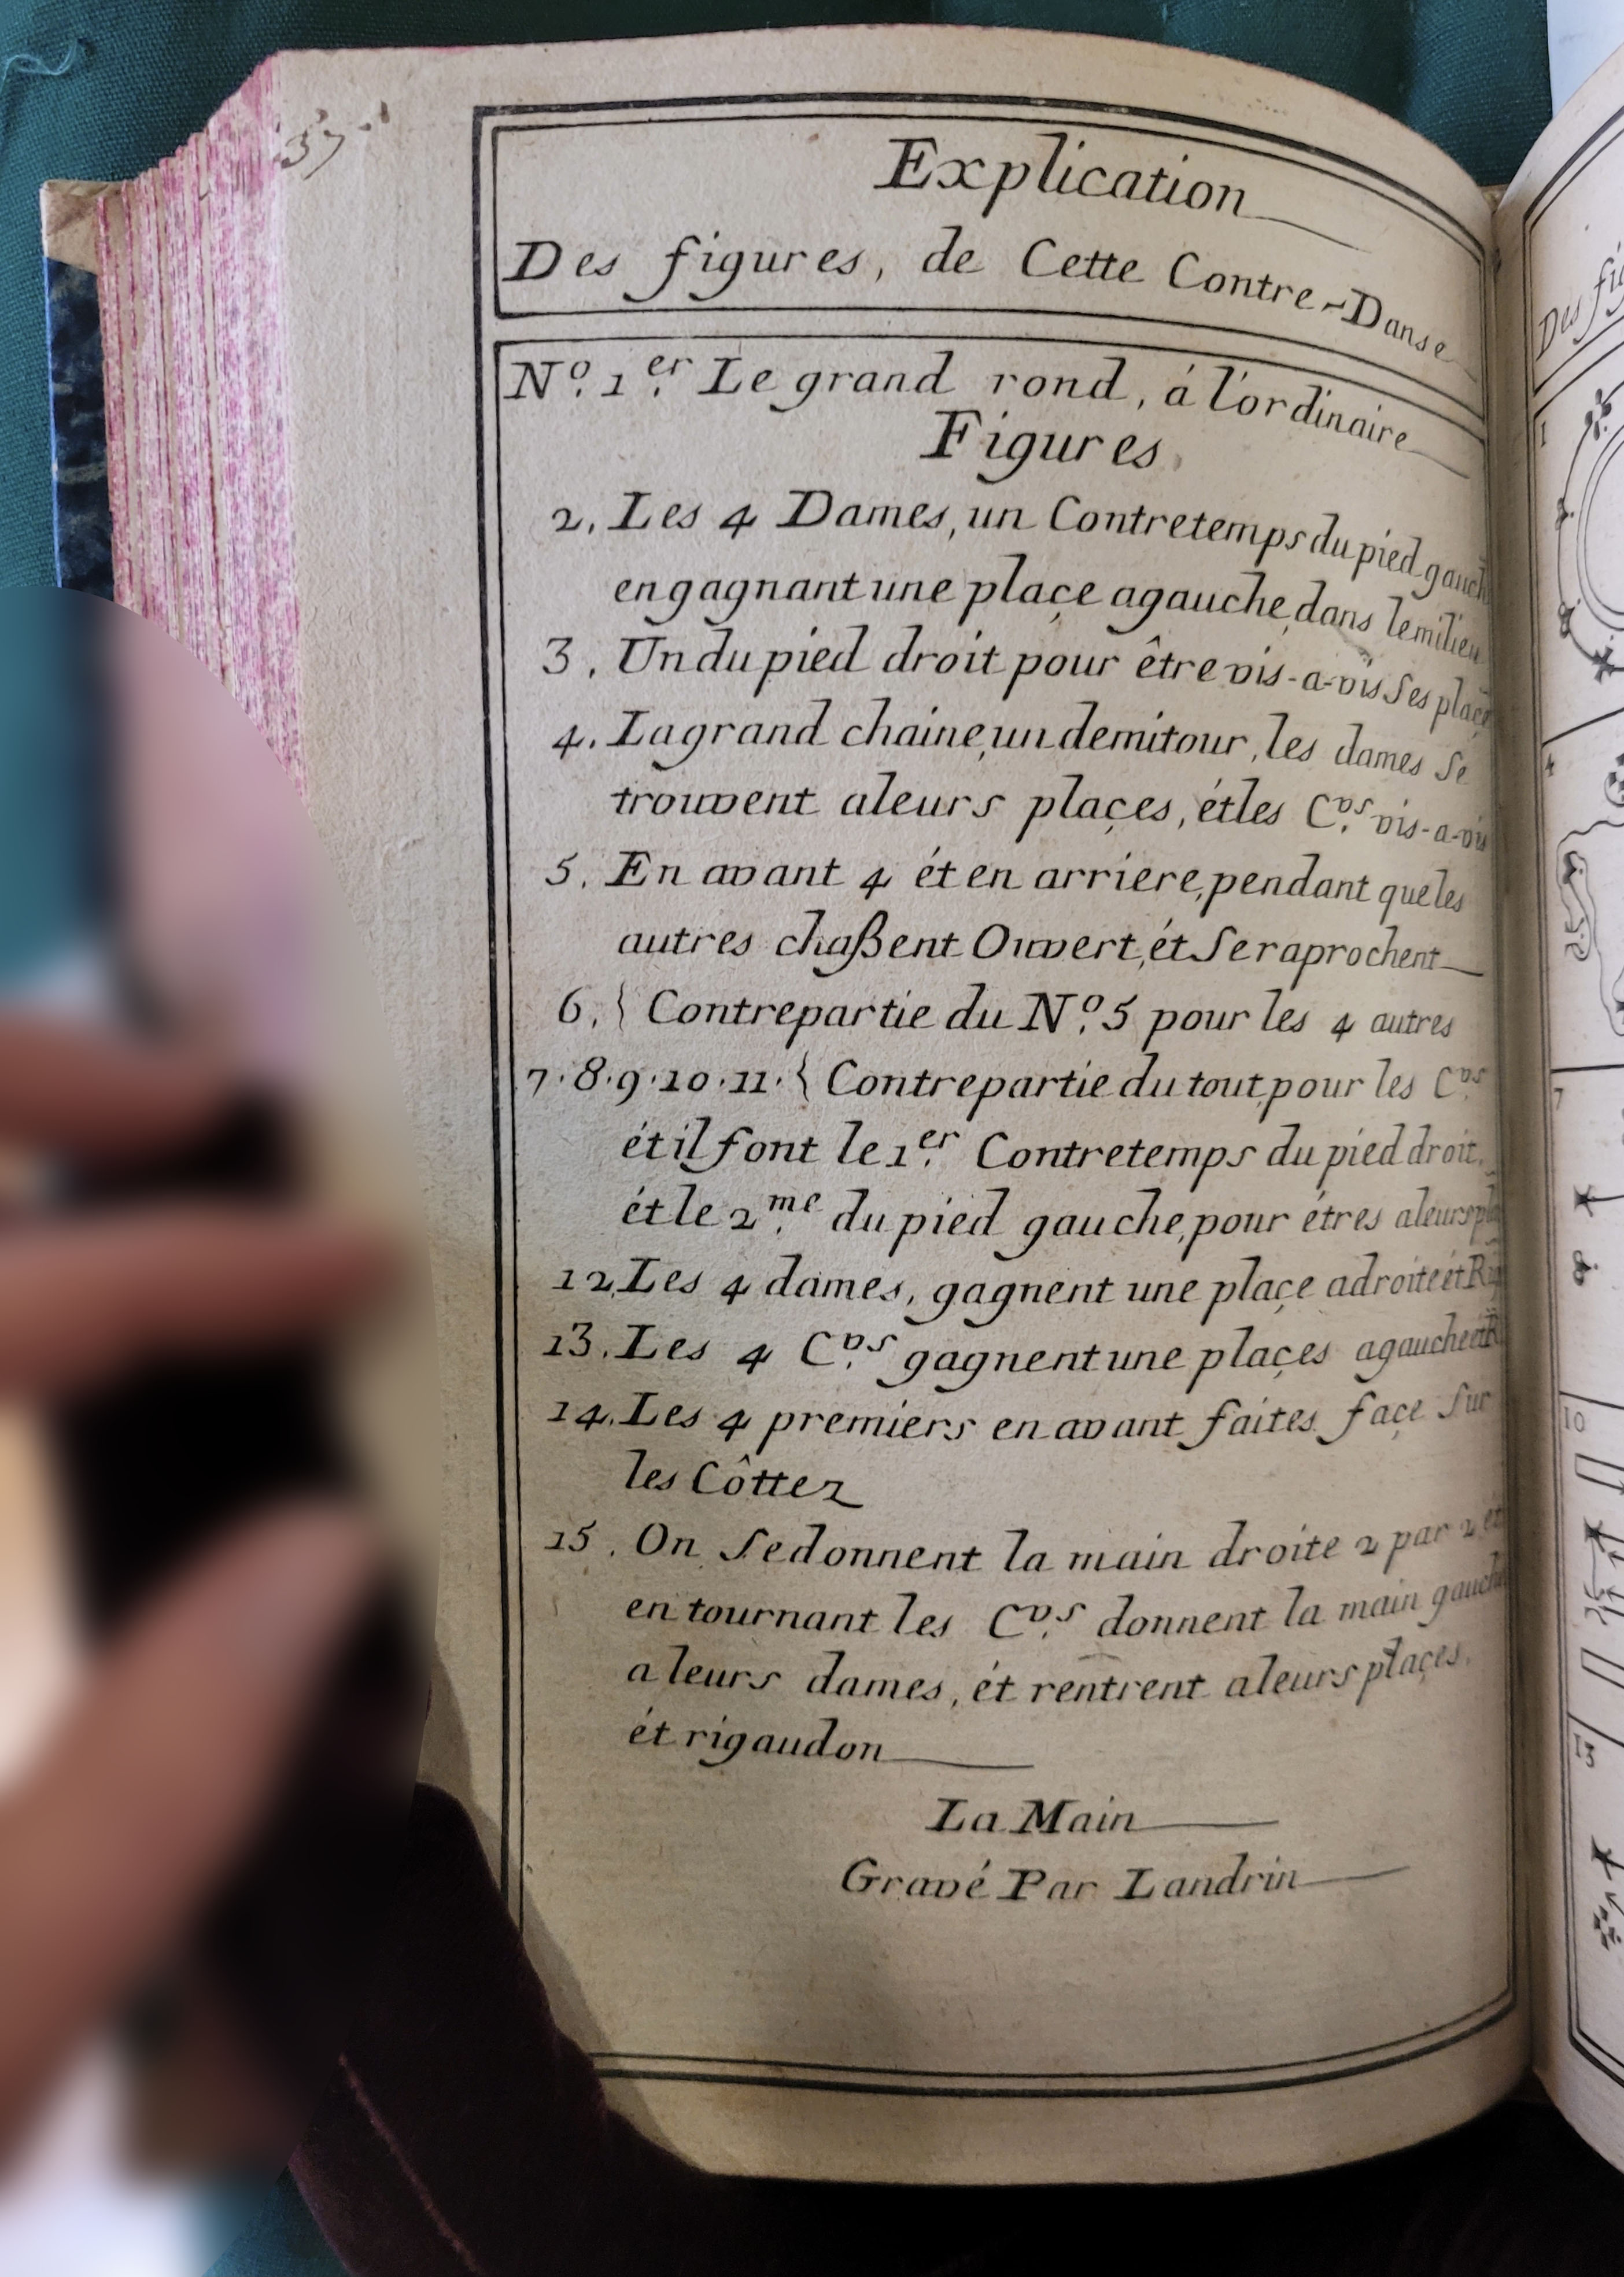 37.
Explication
Des figures, de Cette Contre-Danse
N.º 1.er Le grand rond, á l'ordinaire
Figures
2. Les 4 Dames, un Contretemps du pied gauch
en gagnant une plaçe agauche, dans lemilieu
3. Un du pied droit pour être vis-a-vis Ses plaçe
4. La grand chaine, un demitour, les dames Se
trouvent aleurs plaçes, ét les C.vs vis-a-vis
5. En avant 4 ét en arriere, pendant que les
autres chaßent Ouvert, ét Se raprochent
6. { Contrepartie du N.º 5 pour les 4 autres
7.8.9.10.11. { Contrepartie du tout, pour les C.vs
ét il font le 1.er Contretemps du pied droit,
ét le 2.me du pied gauche, pour étres aleurs
12. Les 4 dames, gagnent une plaçe adroite ét
13. Les 4 C.vs gagnent une plaçes agauche ét
14. Les 4 premiers en avant faites façe Sur
les Côttez
15. On Se donnent la main droite 2 par 2 et
en tournant les C.vs donnent la main gauche
a leurs dames, ét rentrent aleurs plaçes.
ét rigaudon
La Main
Gravé Par Landrin
Des fi
1
4
7
10
13